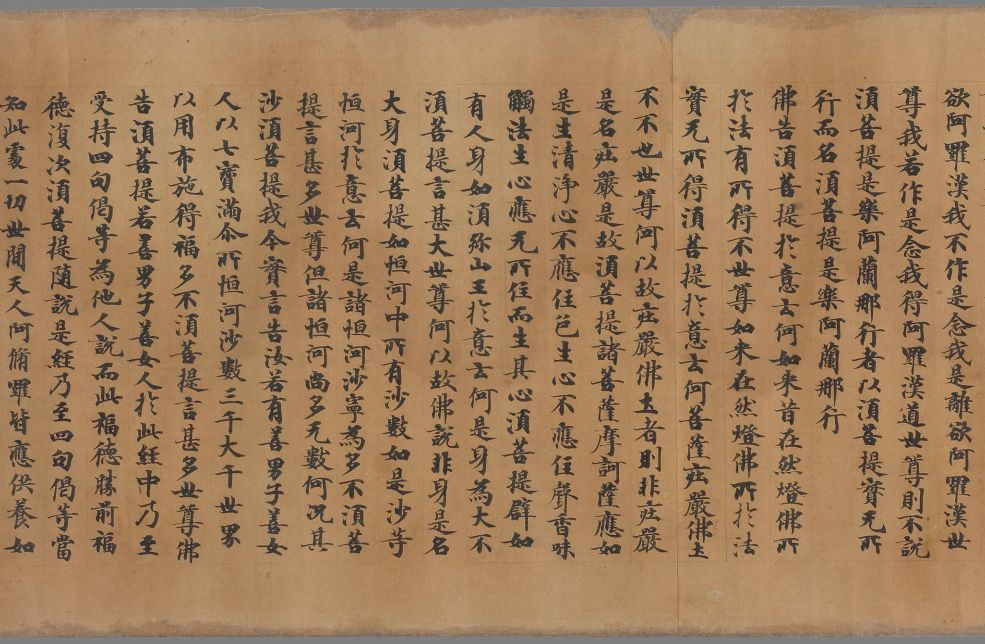 欲阿羅漢我不作是念我是離欲阿羅漢世
尊我若作是念我得阿羅漢道世尊則不說
湏菩提是樂阿蘭那行者以湏菩提實无所
行而名湏菩提是樂阿蘭那行
佛告湏菩提扵意云何如来昔在然燈佛所
扵法有所得不世尊如来在然燈佛所扵法
實无所得湏菩提扵意云何菩薩庄嚴佛土
不不也世尊何以故庄嚴佛土者則非庄嚴
是名庄嚴是故湏菩提諸菩薩摩訶薩應如
是生清淨心不應住色生心不應住聲香味
觸法生心應无所住而生其心湏菩提辟如
有人身如湏弥山王扵意云何是身為大不
湏菩提言甚大世尊何以故佛說非身是名
大身湏菩提如恒河中所有沙數如是沙等
恒河扵意云何是諸恒河沙寧為多不湏菩
提言甚多世尊但諸恒河尚多无數何况其
沙湏菩提我今實言告汝若有善男子善女
人以七寶滿尒所恒河沙數三千大千世界
以用布施得福多不湏菩提言甚多世尊佛
告湏菩提若善男子善女人扵此經中乃至
受持四句偈等為他人說而此福德勝前福
德復次湏菩提随說是經乃至四句偈等當
知此處一切世間天人阿脩羅皆應供養如